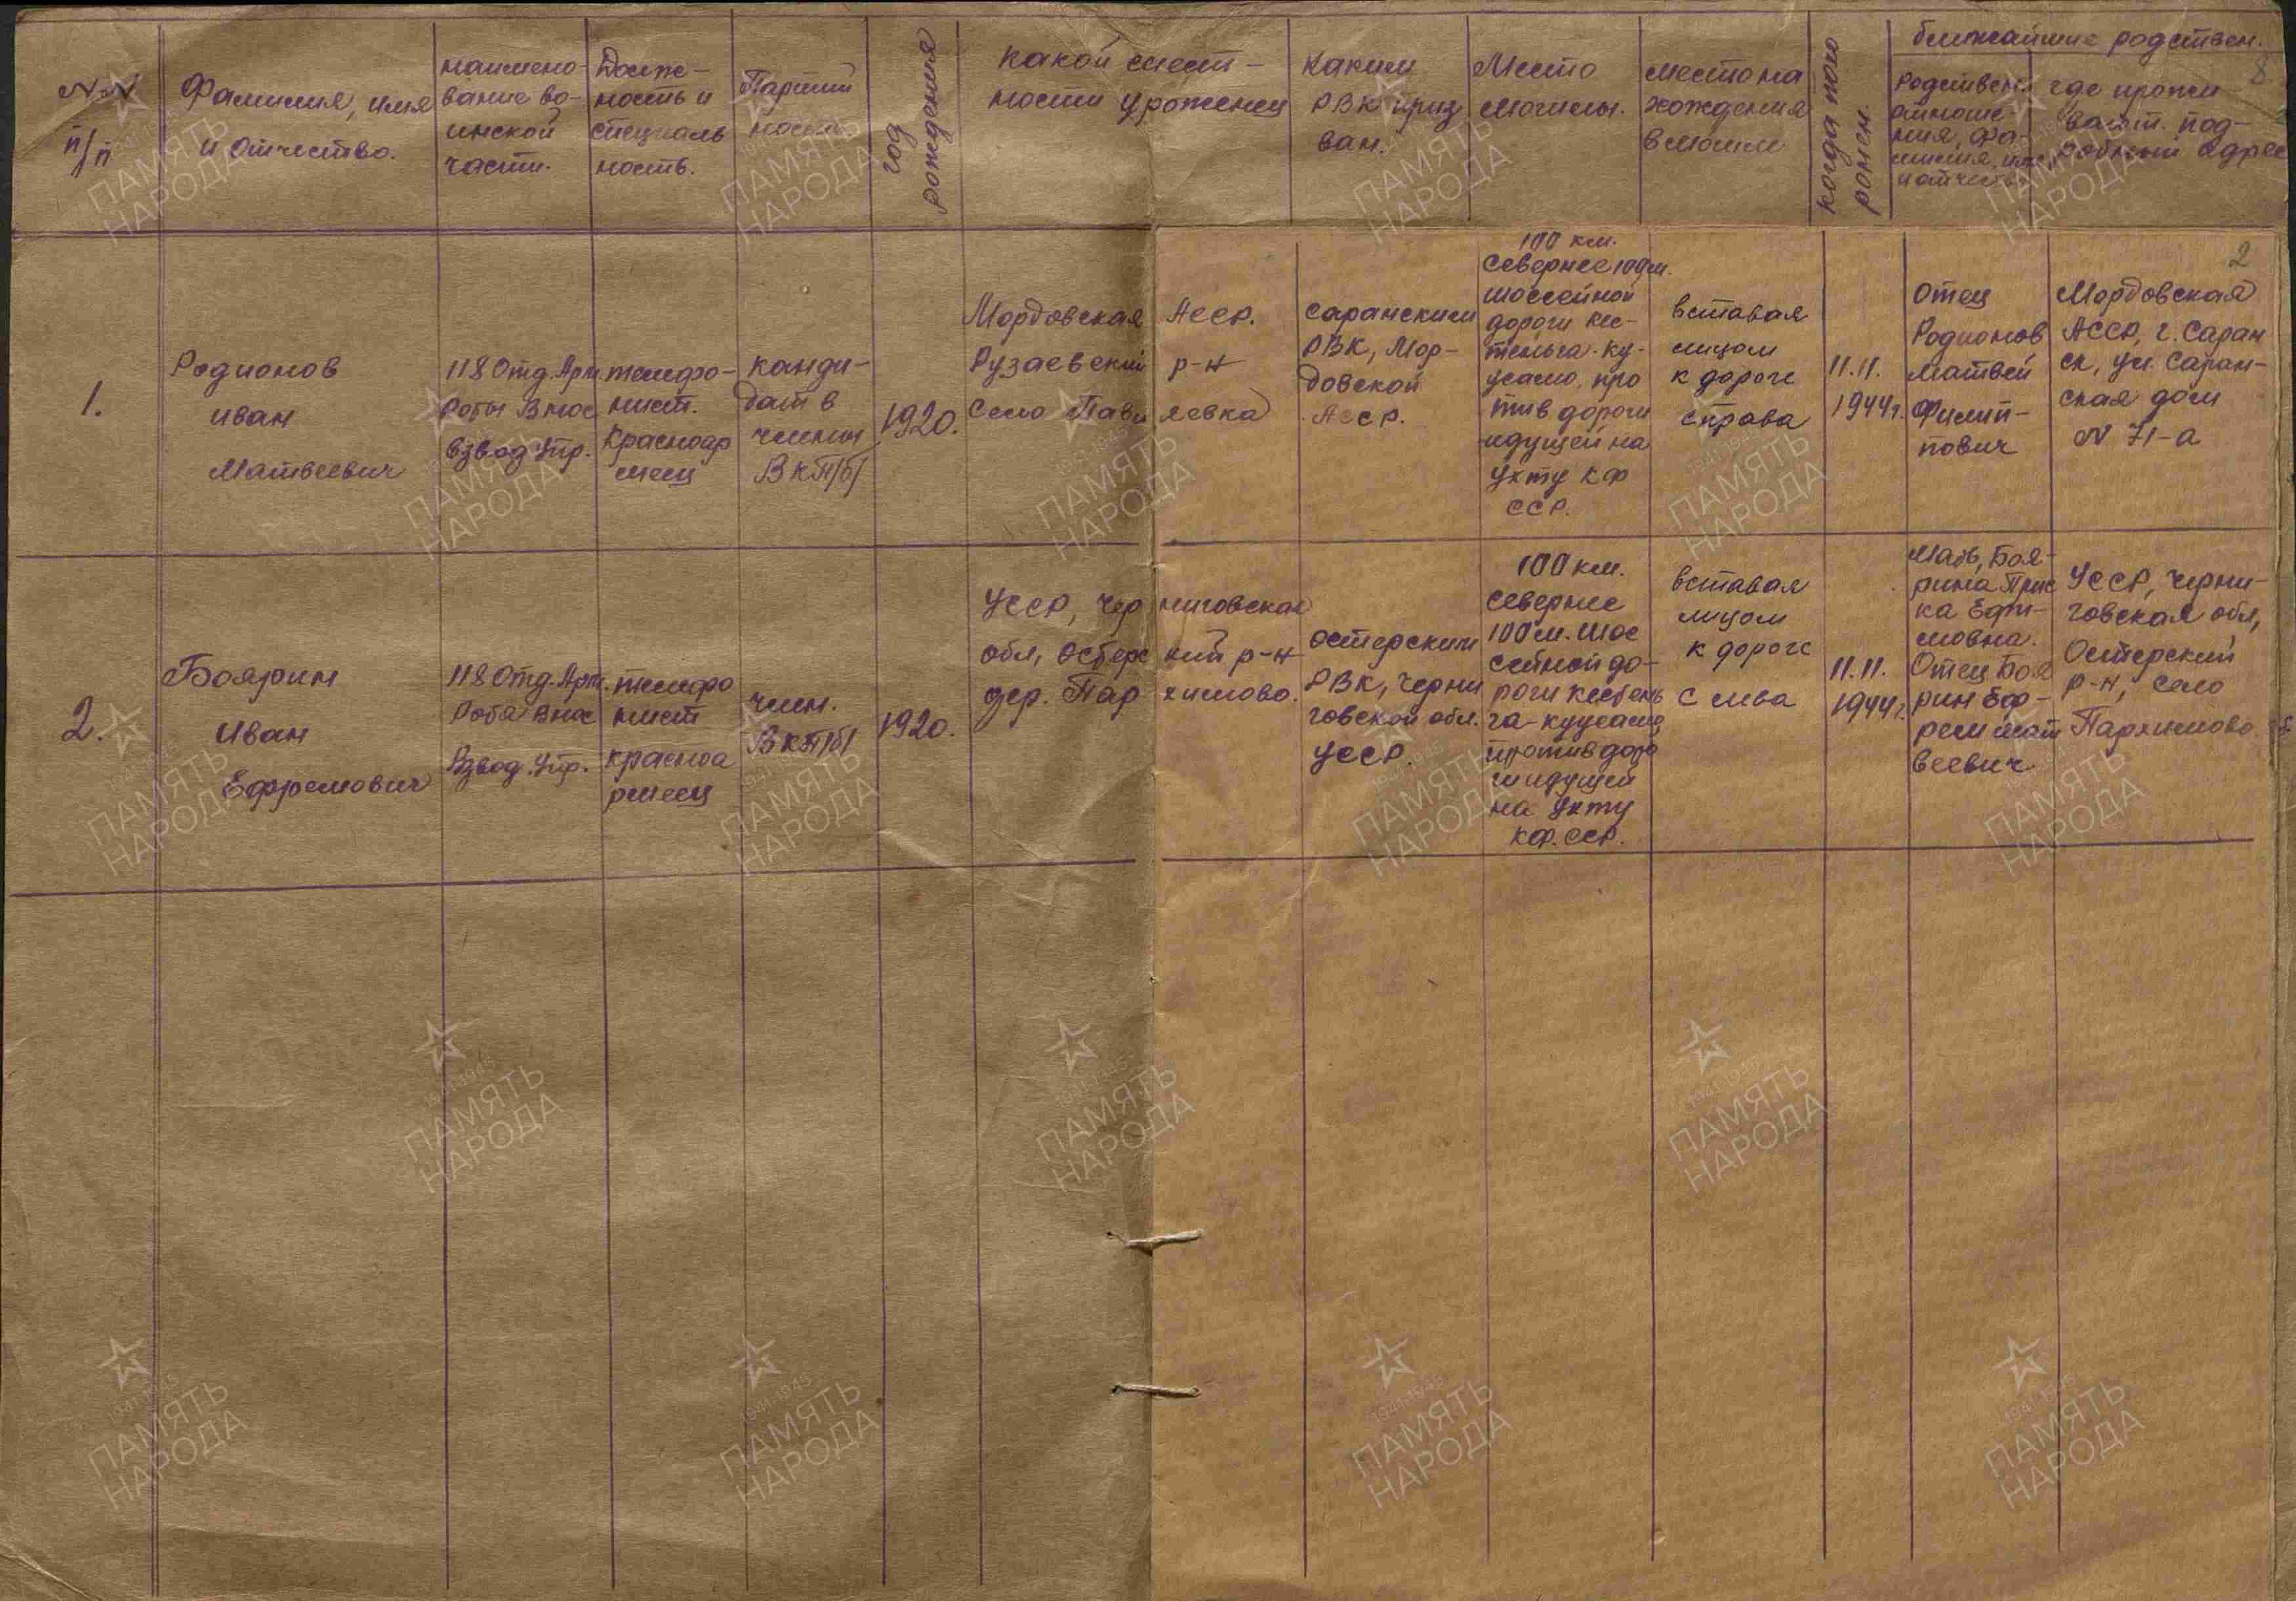 NN п/п
Фамилия, имя и отчество.
наимено-
вание во-
инской
части.
Долж-
ность и
специаль
ность.
Партий
ность
год рождения
какой мест-
ности уроженец
Каким
РВК приз
ван.
Место
могилы.
место на
хождения
в могиле
когда похо
ронен.
ближайшие родствен.
Родствен.
отноше-
ния, фа-
милия, имя
и отчество
где прожи
вают. под-
робный адрес
8
2
1.
Родионов
Иван
Матвеевич
118 Отд. Арт.
Роты Внос
взвод Упр.
телефо-
нист.
Красноар
меец
канди-
дат в
члены
ВКП/б/
1920.
Мордовская АССР.
Рузаевский р-н
село Павляевка
Саранским
РВК, Мор-
довской
АССР.
100 км.
севернее 100 м.
шоссейной
дороги Кес-
теньга-Ку-
усамо, про
тив дороги
идущей на
Ухту КФ
ССР.
вставая
лицом
к дороге
справа
11.11.
1944г.
Отец
Родионов
Матвей
Филип-
пович
Мордовская
АССР, г. Саран
ск, ул. Саран-
ская дом
N 71-а
2.
Боярин
Иван
Ефремович
118 Отд. Арт.
Рота Внос
Взвод Упр.
телефо
нист
красноа
рмеец
член.
ВКП/б/
1920.
УССР, Черниговская
обл, Остерский р-н
дер. Пархимово.
Остерским
РВК, Черни
говской обл.
УССР.
100 км.
севернее
100 м. Шос
сейной до-
роги Кестень
га-Куусамо,
против доро
ги идущей
на Ухту
КФ. ССР.
вставая
лицом
к дороге
слева
11.11.
1944г.
Мать, Боя-
рина Прис
ка Ефи-
мовна.
Отец Боя
рин Еф-
рем Мат
веевич
УССР, Черни-
говская обл,
Остерский
р-н, село
Пархимово.
1941-1945
ПАМЯТЬ
НАРОДА